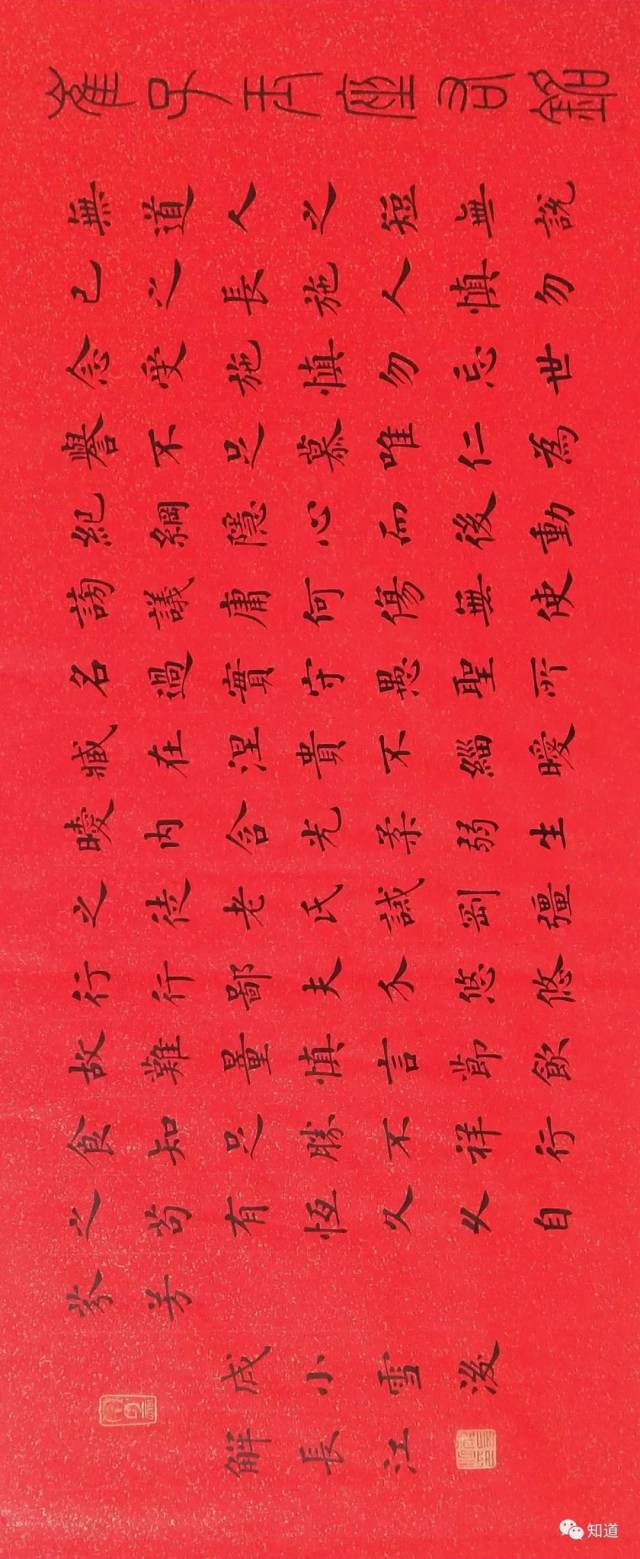 崔子玉座右銘
無道人之短無說
己之長施人慎勿
念受施慎勿忘世
譽不足慕唯仁為
紀綱隱心而後動
謗議庸何傷無使
名過實守愚聖所
臧在涅貴不緇曖
曖内含光柔弱生
之徒老氏誡剛彊
行行鄙夫介悠悠
故難量慎言節飲
食知足勝不祥行
之苟有恆久久自
芬芳
戌小雪後
解長江
知道